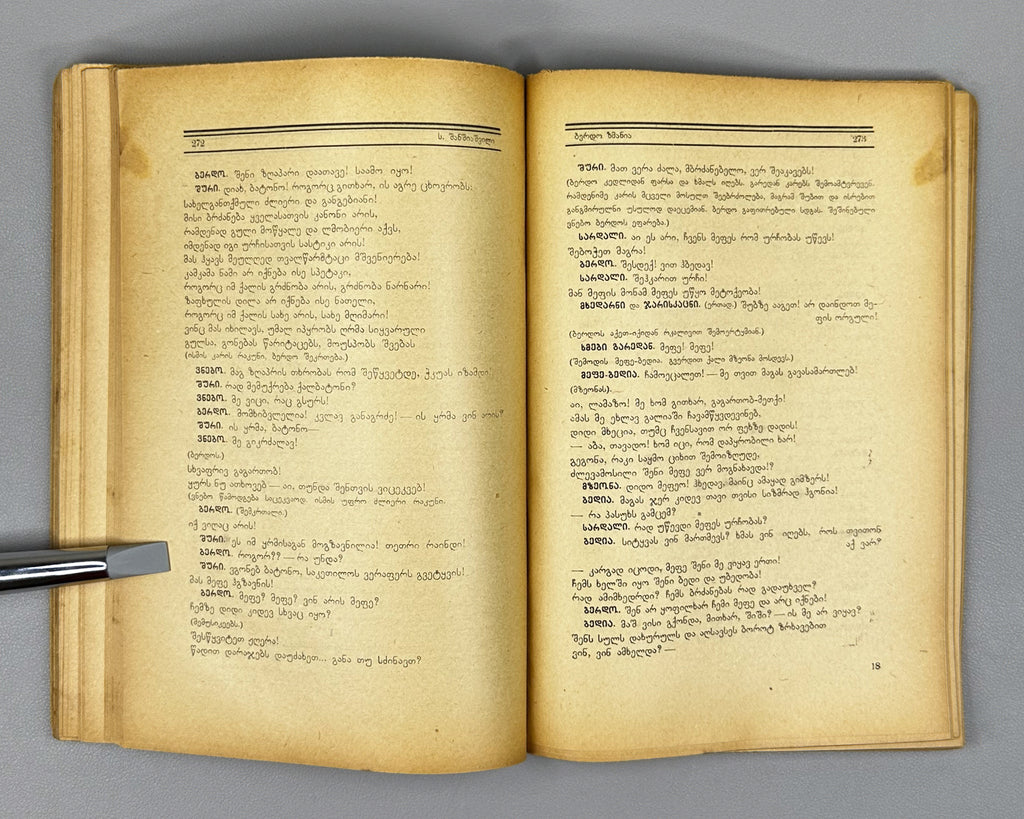 272
ს. შანშიაშვილი
ბერდო. შენი ზღაპარი დაათავე! საამო იყო!
შური. დიახ, ბატონო! როგორც გითხარ, ის აგრე ცხოვრობს:
სახელგანთქმული ძლიერი და განგებიანი!
მისი ბრძანება ყველასათვის კანონი არის,
რამდენად გული მოწყალე და ლმობიერი აქვს,
იმდენად იგი ურჩისათვის სასტიკი არის!
მას ჰყავს მეუღლედ თვალწარმტაცი მშვენიერება!
კამკამა ნამი არ იქნება ისე სპეტაკი,
როგორც იმ ქალის გრძნობა არის, გრძნობა ნარნარი!
ზაფხულის დილა არ იქნება ისე ნათელი,
როგორც იმ ქალის სახე არის, სახე მღიმარი!
ვინც მას იხილავს, უმალ იპყრობს ღრმა სიყვარული
გულსა, გონებას წარიტაცებს, მოუსპობს შვებას
(ისმის კარის რაკუნი, ბერდო შეკრთება.)
ვნებო. მაგ ზღაპრის თხრობას რომ შეწყვეტდე, ჭკუას იზამდი!
შური. რად მემუქრება ქალბატონი?
ვნებო. მე ვიცი, რაც გსურს!
ბერდო. მომხიბვლელია! კვლავ განაგრძე! — ის ყრმა ვინ არის?
შური. ის ყრმა, ბატონო—
ვნებო. მე გიკრძალავ!
(ბერდოს.)
სხვაფრივ გაგართობ!
ყურს ნუ ათხოვებ — აი, თუნდა შენთვის ვიცეკვებ!
(ვნებო წამოდგება საცეკვაოდ. ისმის უფრო ძლიერი რაკუნი.
ბერდო. (შემკრთალი.)
იქ ვიღაც არის!
შური. ეს იმ ყრმისაგან მოგზავნილია! თეთრი რაინდი!
ბერდო. როგორ?? — რა უნდა?
შური. ვგონებ ბატონო, საკეთილოს ვერაფერს გვეტყვის!
მას მეფე ჰგზავნის!
ბერდო. მეფე? მეფე? ვინ არის მეფე?
ჩემზე დიდი კიდევ სხვაც იყო?
(მემუსიკეებს.)
შესწყვიტეთ ჟღერა!
წადით დარაჯებს დაუძახეთ... განა თუ სძინავთ?
ბერდო ზმანია
273
შური. მათ ვერა ძალა, მბრძანებელო, ვერ შეაკავებს!
(ბერდო კედლიდან ფარსა და ხმალს იღებს. გარედან კარებს შემოამტვრევენ.
რამდენიმე კარის მცველი მოსულთ შეებრძოლება, მაგრამ შუბით და ისრებით
განგმირული უსულოდ დაეცემიან. ბერდო გაფითრებული სდგას. შეშინებული
ვნებო ბერდოს ეფარება.)
სარდალი. აი ეს არი, ჩვენს მეფეს რომ ურჩობას უწევს!
შებოჭეთ მაგრა!
ბერდო. შესდექ! ვით ჰბედავ!
სარდალი. შეჰკარით ურჩი!
მან მეფის მონამ მეფეს უწყო მეტოქეობა!
მხედარნი და ჯარისკაცნი. (ერთად.) შუბზე ააგეთ! არ დაინდოთ მე-
ფის ორგული!
(ბერდოს აქეთ-იქიდან რკალივით შემოერტყმიან.)
ხმები გარედან. მეფე! მეფე!
(შემოდის მეფე-ბედია. გვერდით ქალი მზეონა მოსდევს.)
მეფე-ბედია. ჩამოეცალეთ! — მე თვით მაგას გავასამართლებ!
(მზეონას).
აი, ლამაზო! მე ხომ გითხარ, გაგართობ-მეთქი!
ამას მე ეხლავ გალიაში ჩავამწყვდევინებ,
დიდი მხეცია, თუმც ჩვენსავით ორ ფეხზე დადის!
— აბა, თავადო! ხომ იცი, რომ დაპყრობილი ხარ!
გეგონა, რაკი საყმო ციხით შემოიზღუდე,
ძლევამოსილი შენი მეფე ვერ მოგნახავდა!?
მზეონა. დიდო მეფეო! ჰხედავ, მაინც ამაყად გიმზერს!
ბედია. მაგას ჯერ კიდევ თავი თვისი სიზმრად ჰგონია!
— რა პასუხს გამცემ?
სარდალი. რად უწევდი მეფეს ურჩობას?
ბედია. სიტყვას ვინ მართმევს? ხმას ვინ იღებს, როს თვითონ
აქ ვარ?
— კარგად იცოდი, მეფე შენი მე ვიყავ ერთი!
ჩემს ხელში იყო შენი ბედი და უბედობა!
რად ამიმხედრდი? ჩემს ბრძანებას რად გადაუხველ?
ბერდო. შენ არ ყოფილხარ ჩემი მეფე და არც იქნები!
ბედია. მაშ ვისი გქონდა, მითხარ, შიში? — ის მე არ ვიყავ?
შენს სულს დახურულს და აღსავსეს ბოროტ ზრახვებით
ვინ, ვინ ამხელდა? —
18